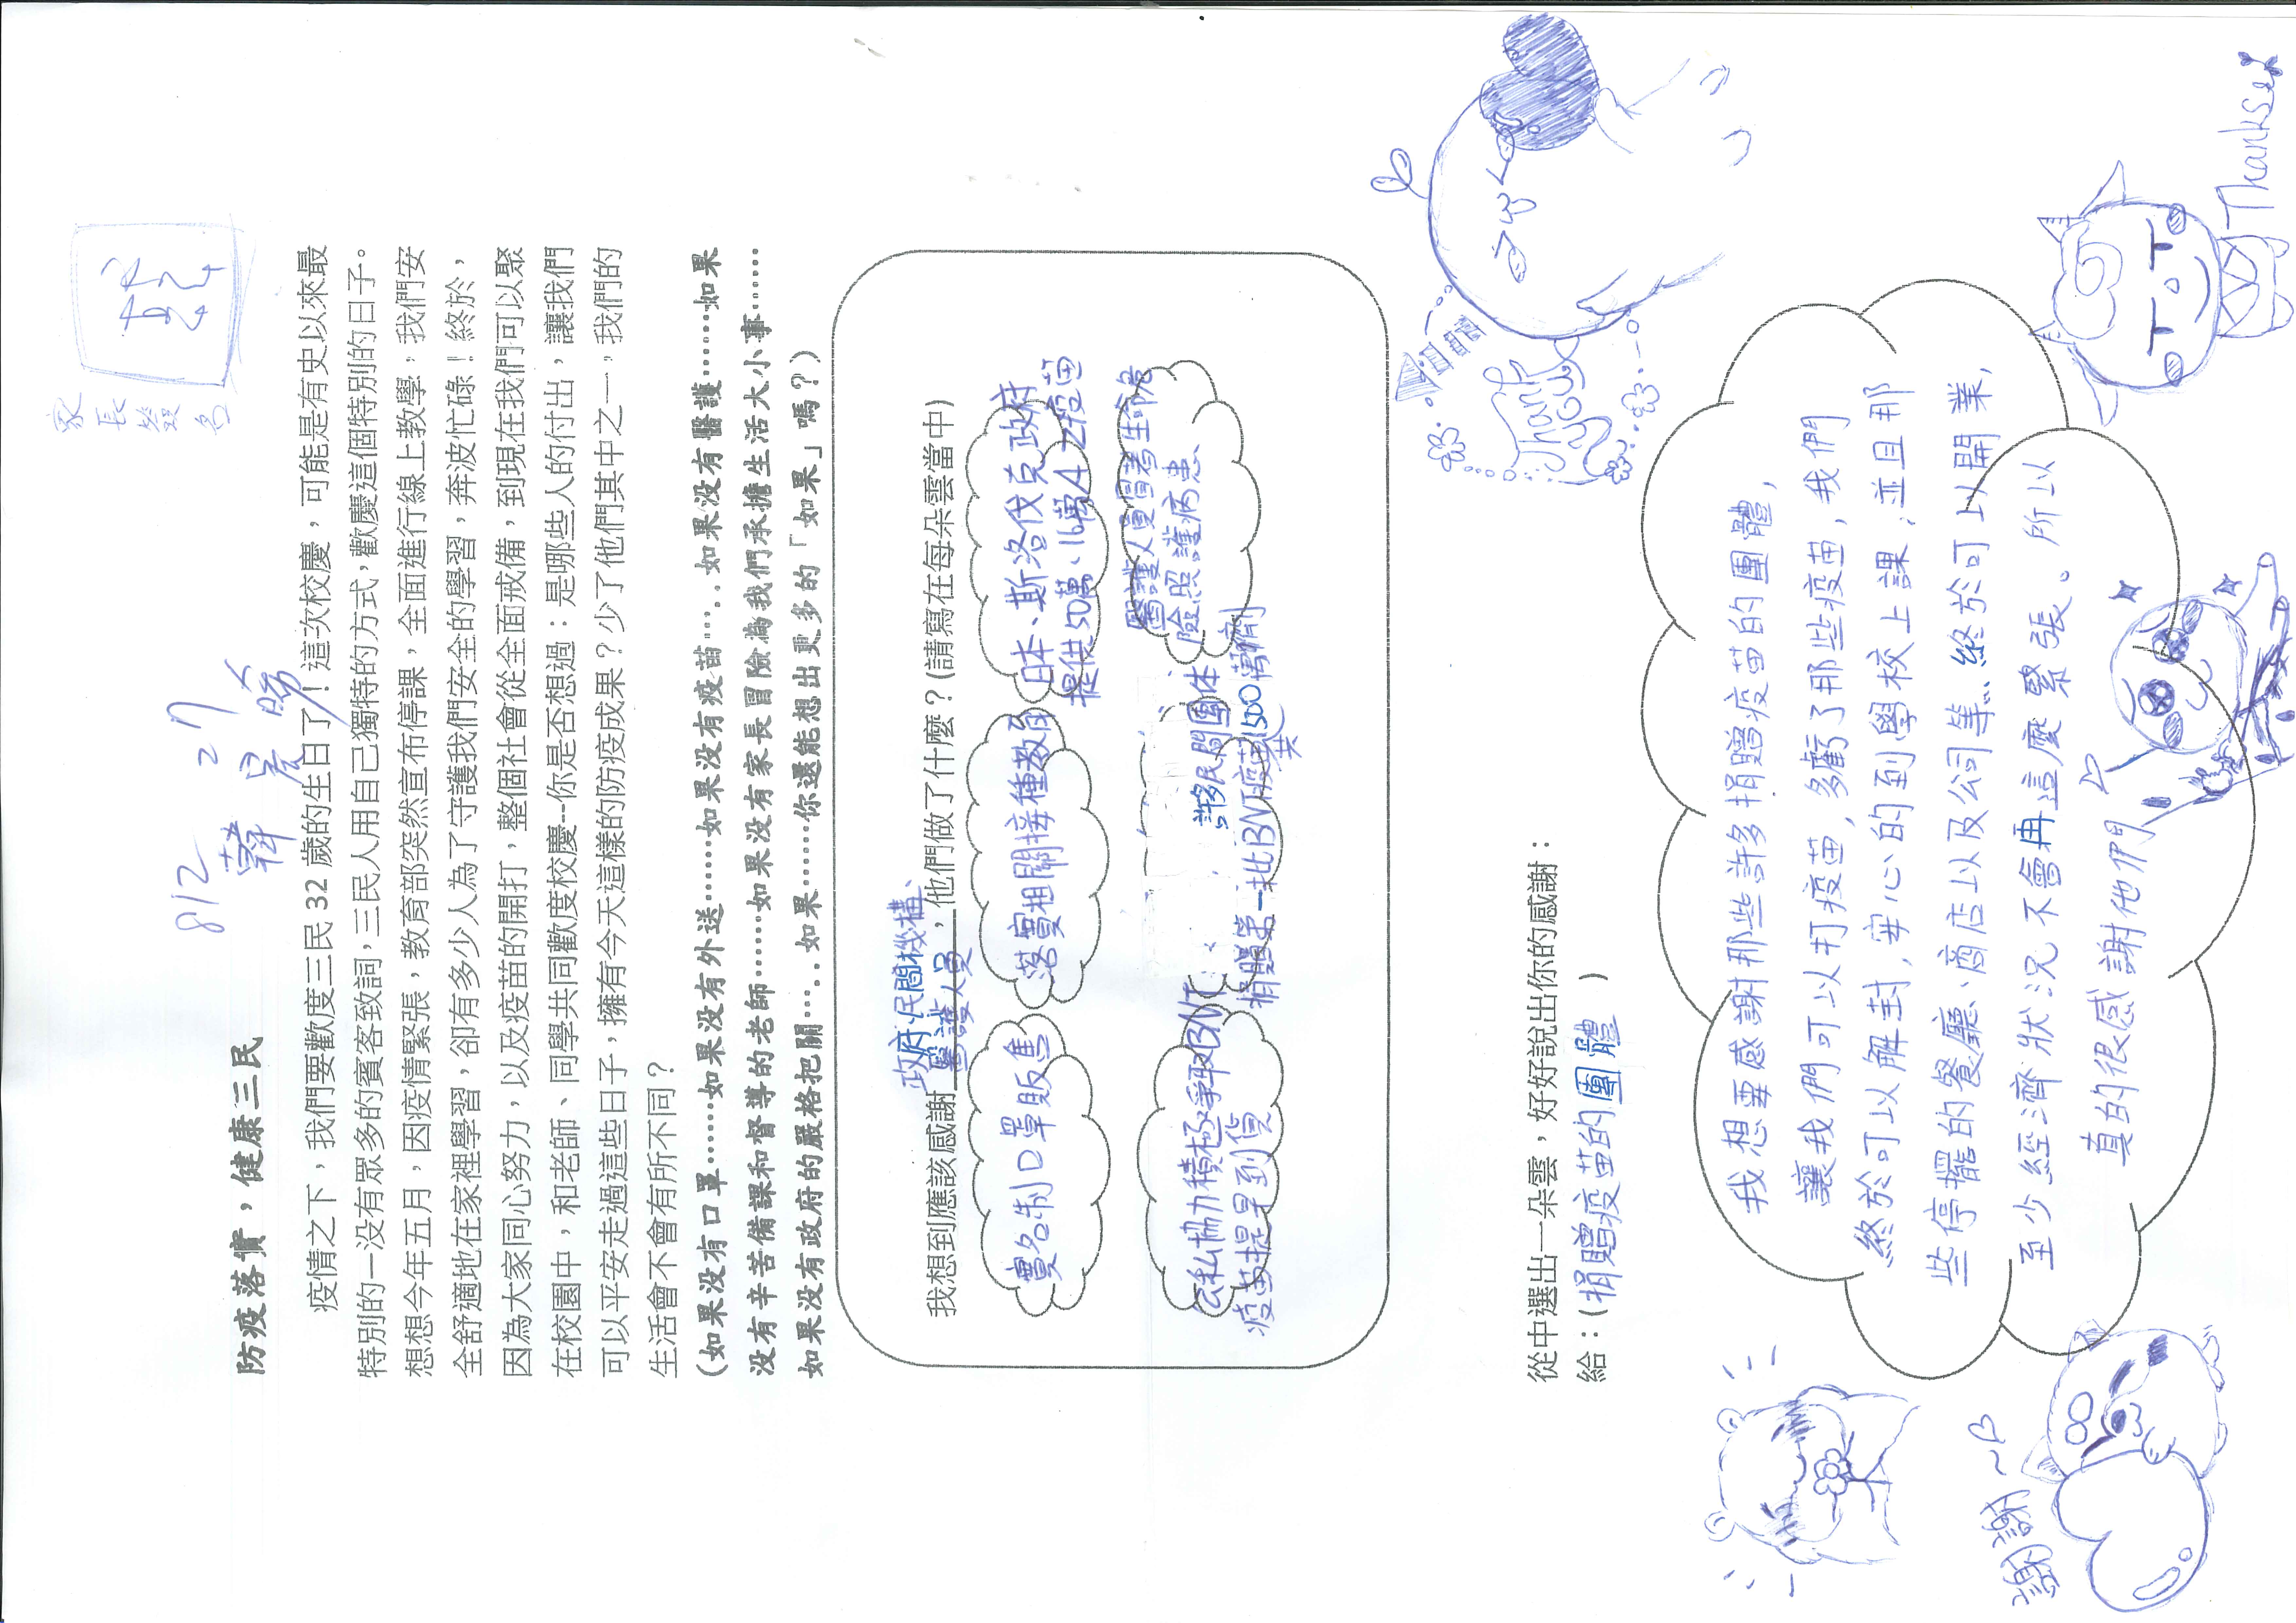 812 27
韓晨曦
家長簽名
防疫落實，健康三民
疫情之下，我們要歡度三民 32 歲的生日了！這次校慶，可能是有史以來最
特別的一沒有眾多的賓客致詞，三民人用自己獨特的方式，歡慶這個特別的日子。
想想今年五月，因疫情緊張，教育部突然宣布停課，全面進行線上教學，我們安
全舒適地在家裡學習，卻有多少人為了守護我們安全的學習，奔波忙碌！終於，
因為大家同心努力，以及疫苗的開打，整個社會從全面戒備，到現在我們可以聚
在校園中，和老師、同學共同歡度校慶--你是否想過：是哪些人的付出，讓我們
可以平安走過這些日子，擁有今天這樣的防疫成果？少了他們其中之一，我們的
生活會不會有所不同？
(如果没有口罩……如果没有外送……如果没有疫苗…..如果没有醫護……如果
没有辛苦備課和督導的老師……如果没有家長冒險為我們承擔生活大小事……
如果没有政府的嚴格把關…..如果……你還能想出更多的「如果」嗎？)
政府、民間機構、
我想到應該感謝醫護人員，他們做了什麼？(請寫在每朵雲當中)
實名制口罩販售
落實相關接種教育
日本、斯洛伐克政府
提供50萬、16萬AZ疫苗
公私協力積極爭取BNT
疫苗提早到貨
許多民間團体
捐贈第一批BNT疫苗共1500萬劑
醫護人員冒著生命危
險照護病患
從中選出一朵雲，好好說出你的感謝：
給：(捐贈疫苗的團體 )
我想要感謝那些許多捐贈疫苗的團體，
讓我們可以打疫苗，多虧了那些疫苗，我們
終於可以解封，安心的到學校上課，並且那
些停擺的餐廳、商店以及公司等…終於可以開業，
至少經濟狀況不會再這麼緊張。所以
真的很感謝他們
Thank
you
Thanks
謝謝